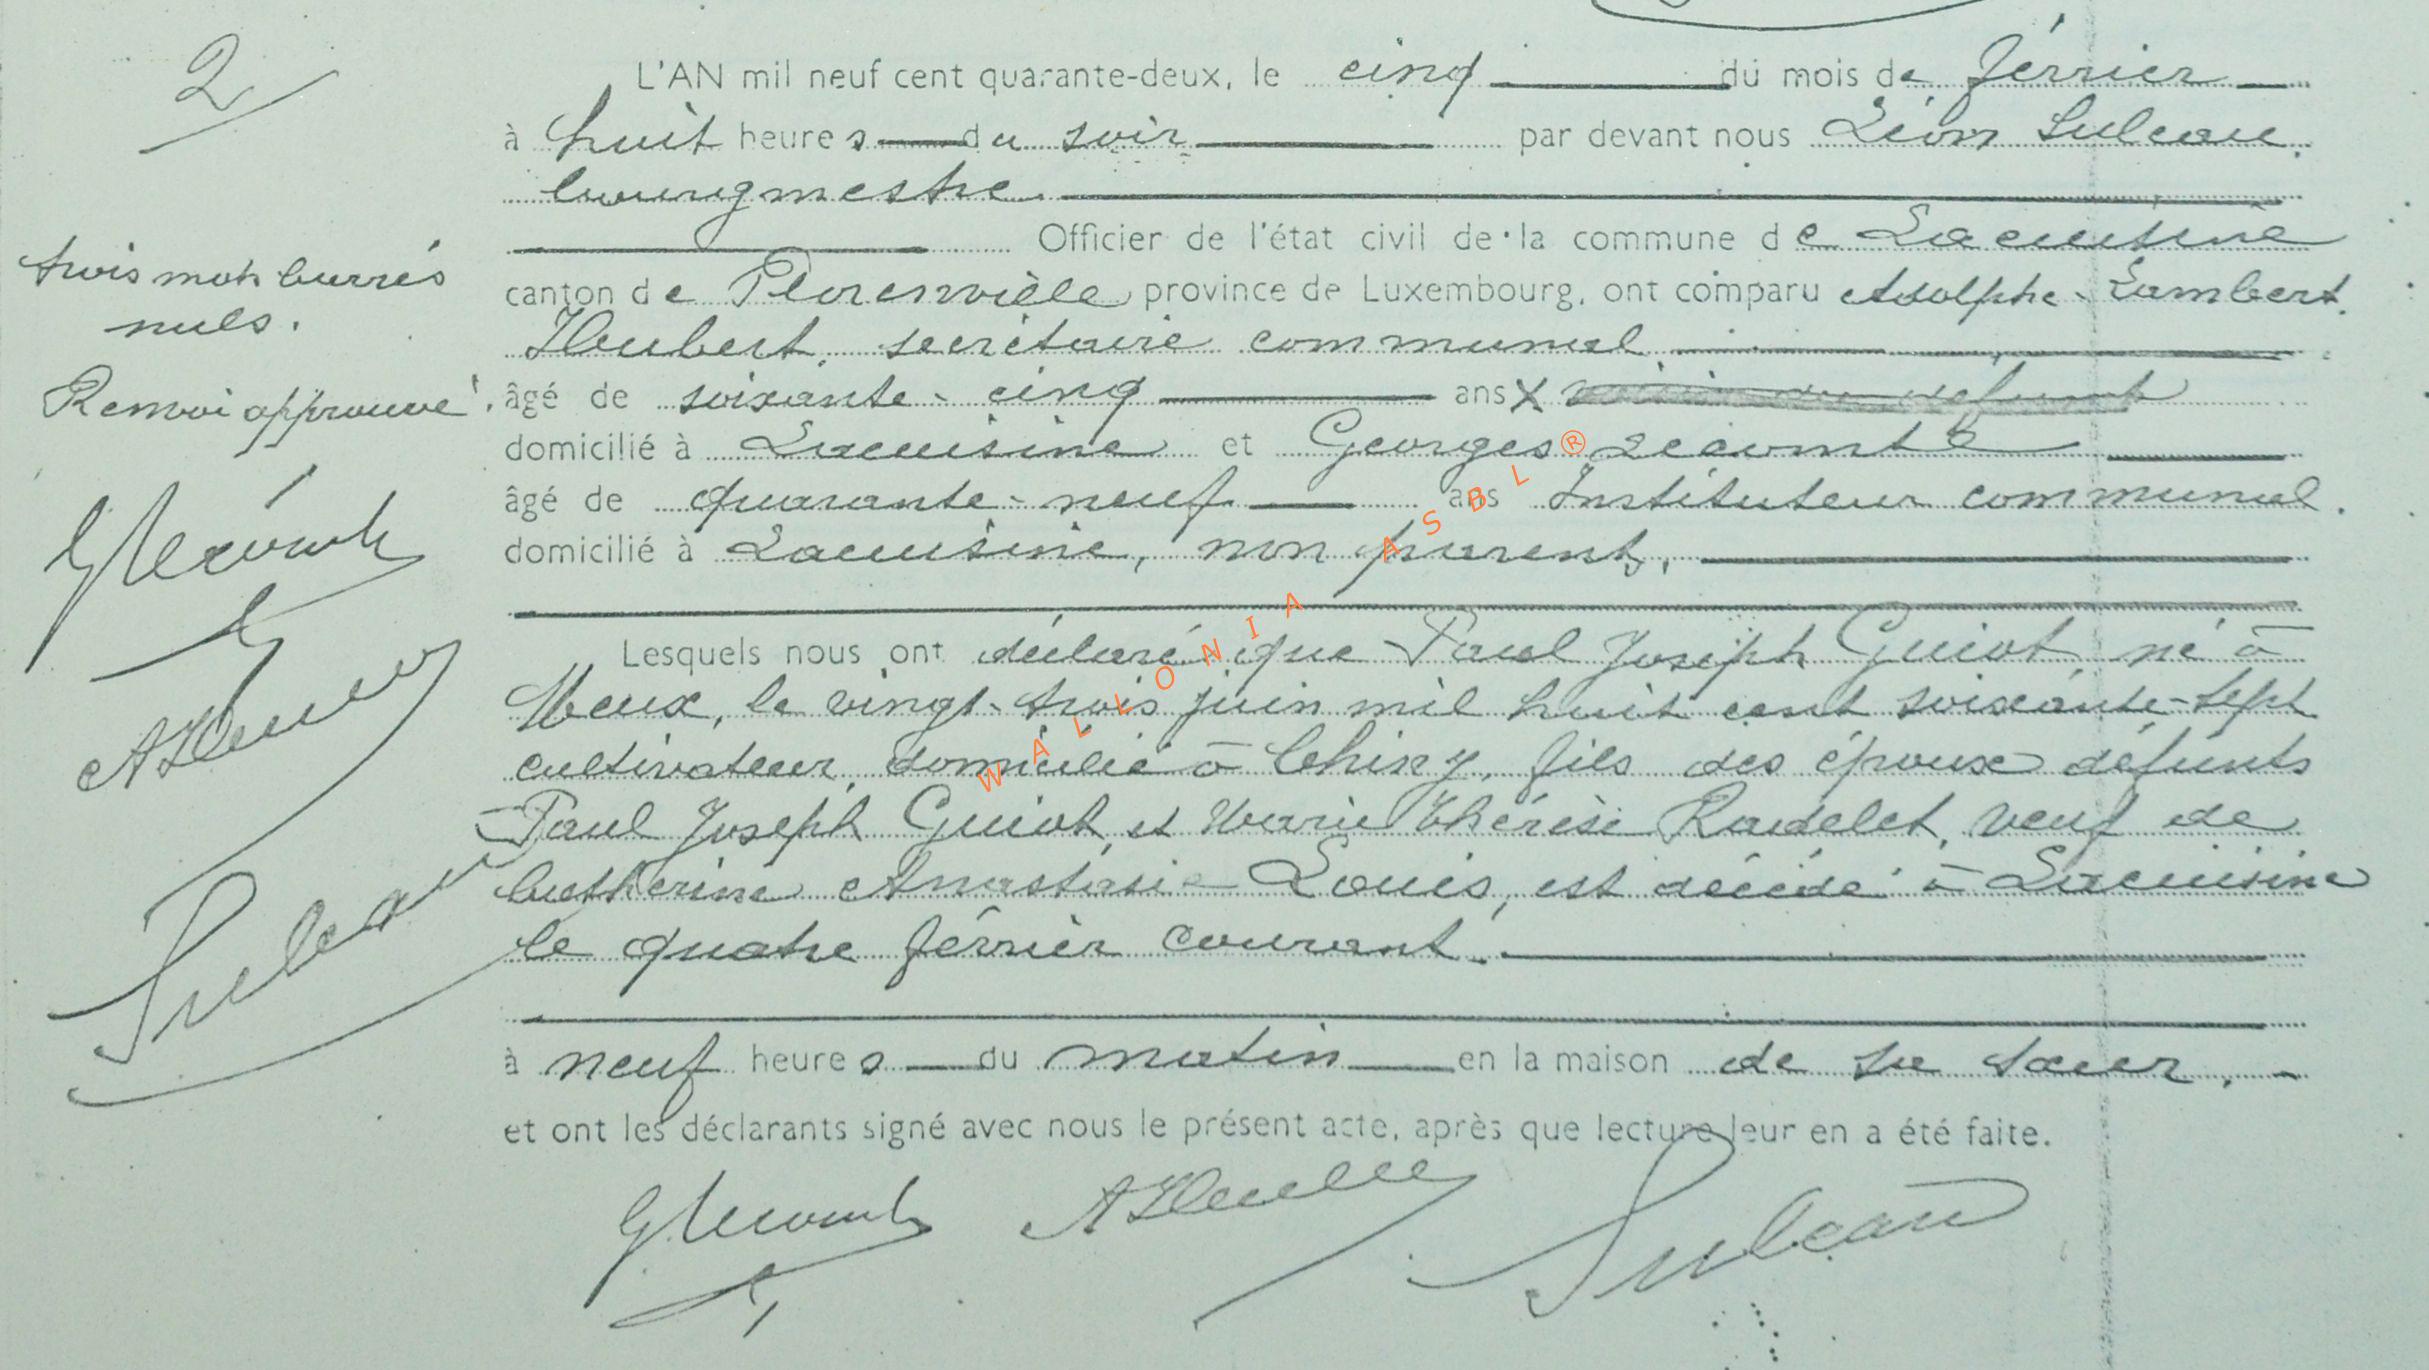 2
L'AN mil neuf cent quarante-deux, le cinq du mois de février
à huit heures du soir par devant nous Léon Suleau,
bourgmestre
Officier de l'état civil de la commune de Lacuisine
canton de Florenville province de Luxembourg, ont comparu Adolphe Lambert
secrétaire communal
âgé de soixante-cinq ans X
domicilié à Lacuisine et Georges Lecomte
âgé de quarante-neuf ans Instituteur communal
domicilié à Lacuisine, non parents,
Lesquels nous ont déclaré que Paul Joseph Guiot, né à
le vingt-trois juin mil huit cent soixante-sept
cultivateur, domicilié à Chiny, fils des époux défunts
Paul Joseph Guiot et Marie Thérèse Raudelet, veuf de
Catherine Anastasie Louis, est décédé à Lacuisine
le quatre février courant.
à neuf heures du matin en la maison de sa sœur.
et ont les déclarants signé avec nous le présent acte, après que lecture leur en a été faite.
GLecomte Suleau
trois mots barrés
nuls.
Renvoi approuvé.
GLecomte
Suleau
WALLONIA ASBL®